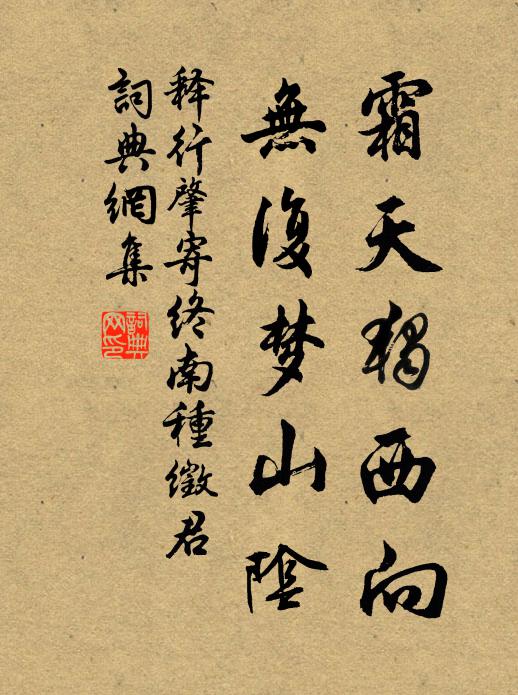 霜天独西向
無復梦山陰
释行肇寄终南種徵君
詞典網集
詞典网印